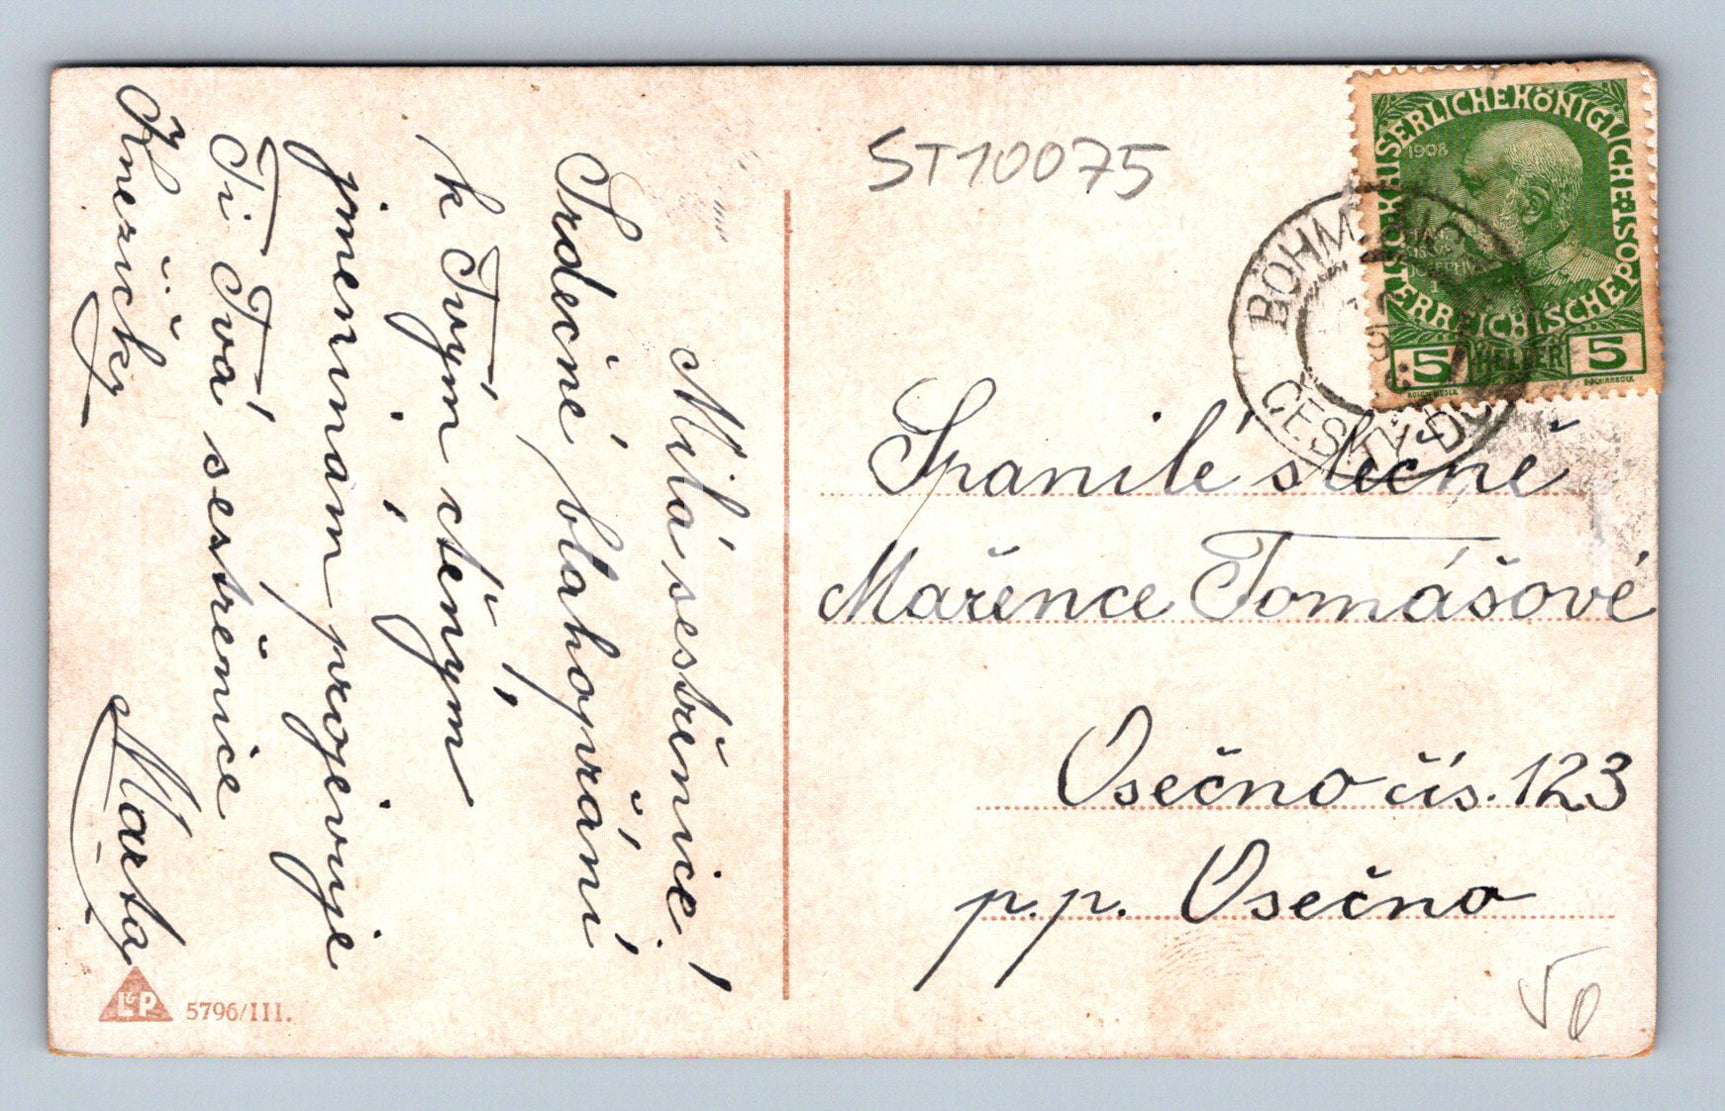 Milá sestřenice!
Srdečné blahopřání
k Tvým ctěným
jmeninám projevuje
Ti Tvá sestřenice
Kněžičky Marta
L&P 5796/III.
ST10075
KAISERLICHE KÖNIGLICHE ÖSTERREICHISCHE POST
1908
5 HELLER 5
BÖHM.
ČESKÝ DUB
Spanilé slečně
Mařence Tomášové
Osečno čís. 123
p.p. Osečno
50